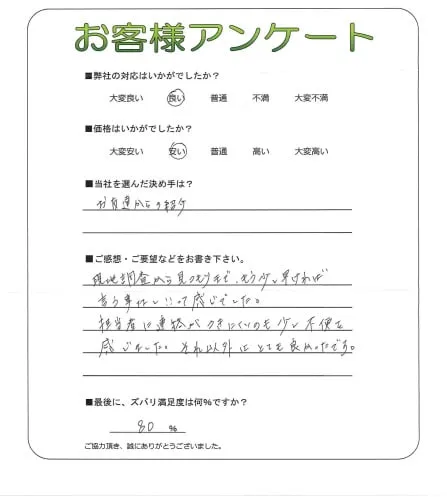 お客様アンケート
■弊社の対応はいかがでしたか？
大変良い 良い 普通 不満 大変不満
■価格はいかがでしたか？
大変安い 安い 普通 高い 大変高い
■当社を選んだ決め手は？
お友達からの紹介
■ご感想・ご要望などをお書き下さい。
現地調査から見つもりまで、もう少し早ければ
言う事なしって感じでした。
担当者に連絡がつきにくいのも少し不便を
感じました。それ以外はとても良かったです。
■最後に、ズバリ満足度は何％ですか？
80 %
ご協力頂き、誠にありがとうございました。